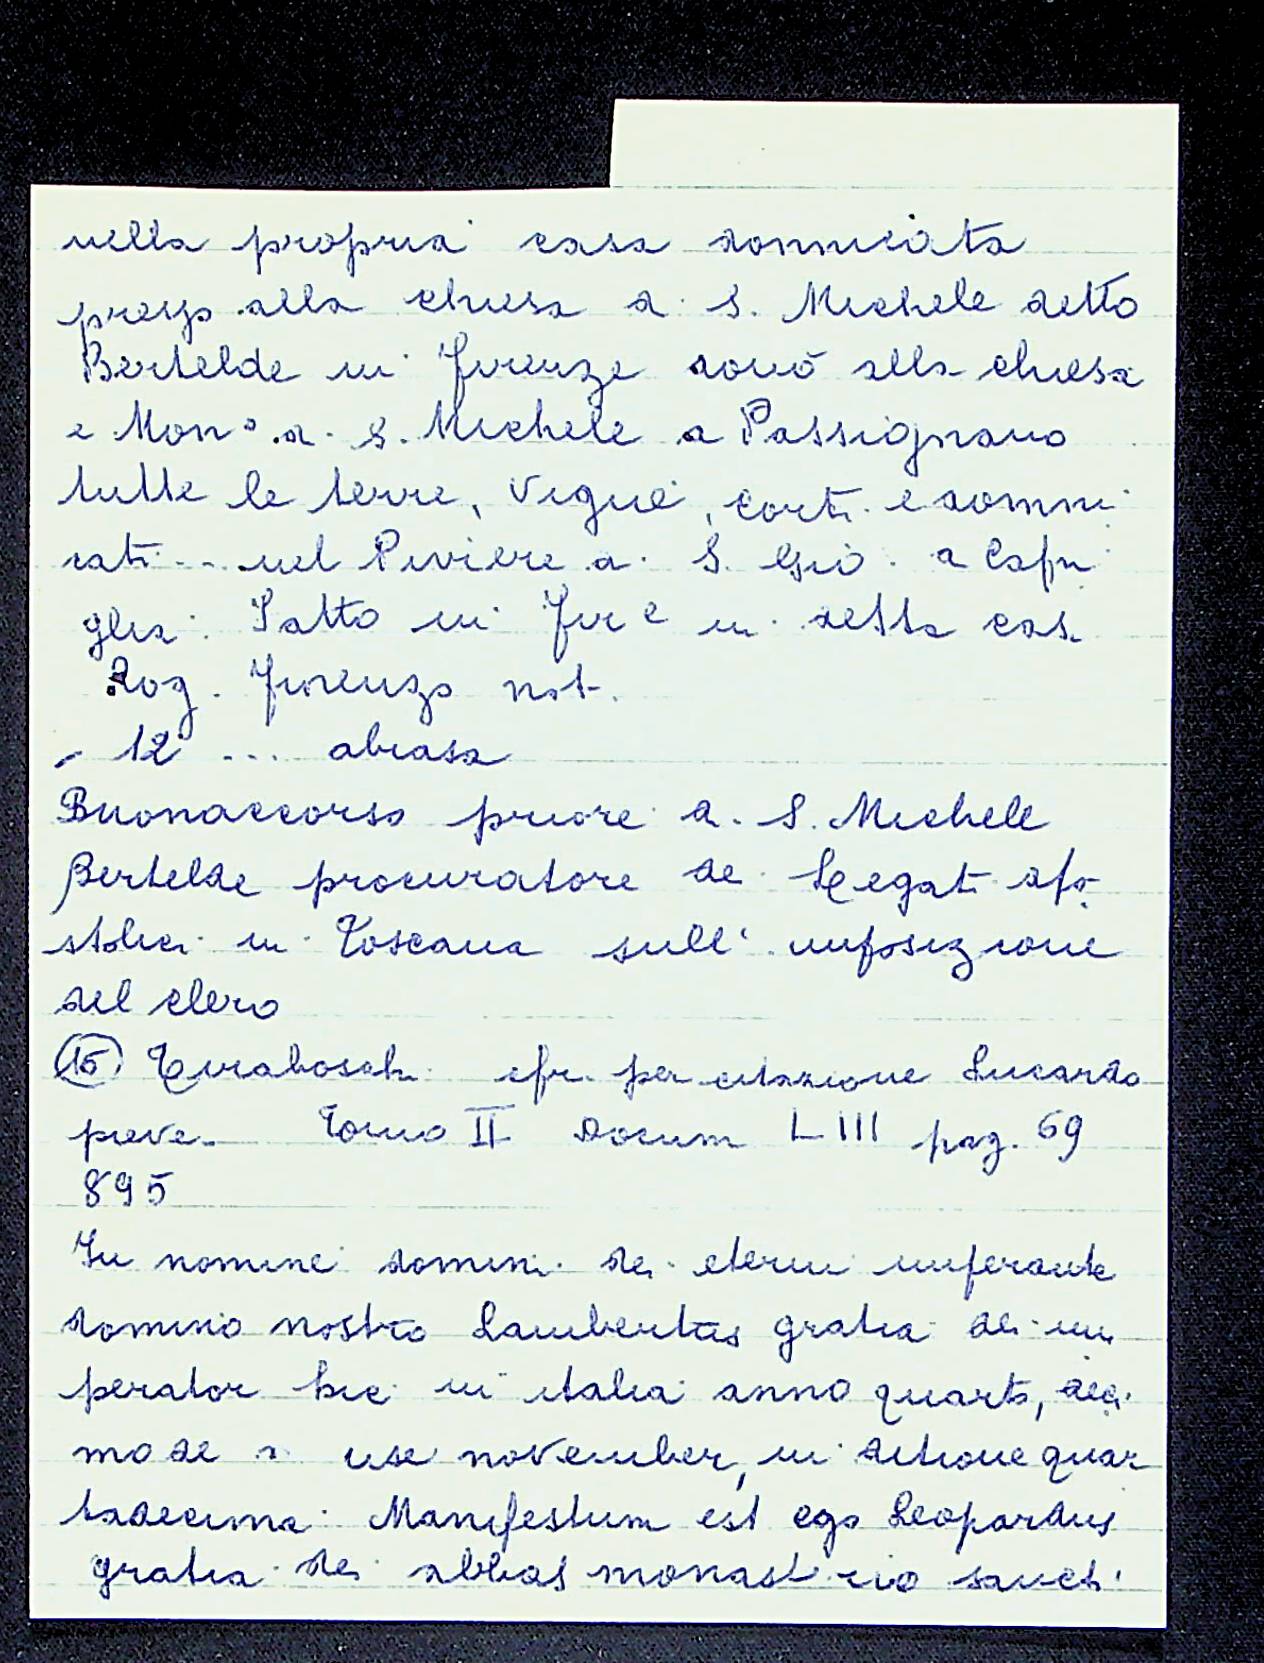 nella propria casa donnicata
presso alla chiesa di S. Michele detto
Bertelde in Firenze donò alla chiesa
e Mon° di S. Michele a Passignano
tutte le terre, vigne, corti e donni
cati... nel Piviere di S. Gio. a Capi
glia. Fatto in Fir e in detta casa
Rog. Firenzo not.
- 12 ... abrasa
Buonaccorso priore di S. Michele
Bertelde procuratore de Legati apo-
stolici in Toscana sull' imposizione
del clero
(15) Tiraboschi cfr. per citazione Lucardo
pieve - Tomo II Docum LIII pag. 69
895
In nomine domini dei eterni imperante
domino nostro Lambertus gratia dei im
perator hic in italia anno quarto, deci
mo de mense november, in dictione quar
tadecima. Manifestum est ego Leopardus
gratia dei abbas monasterio sancti